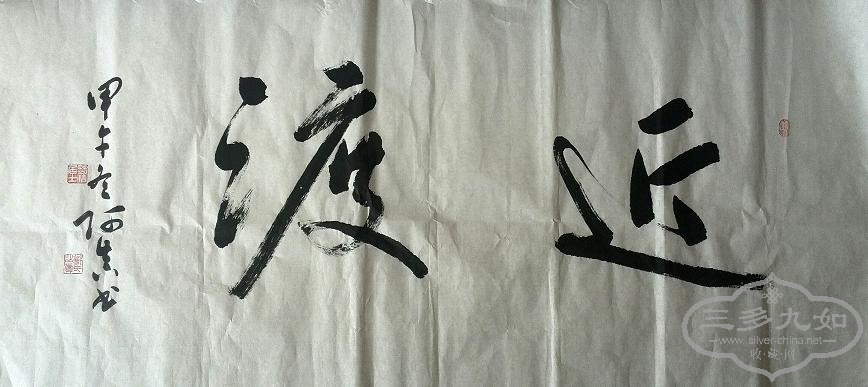 近渡
甲午冬阿真书
三多九如
www.silver-china.net
收藏网